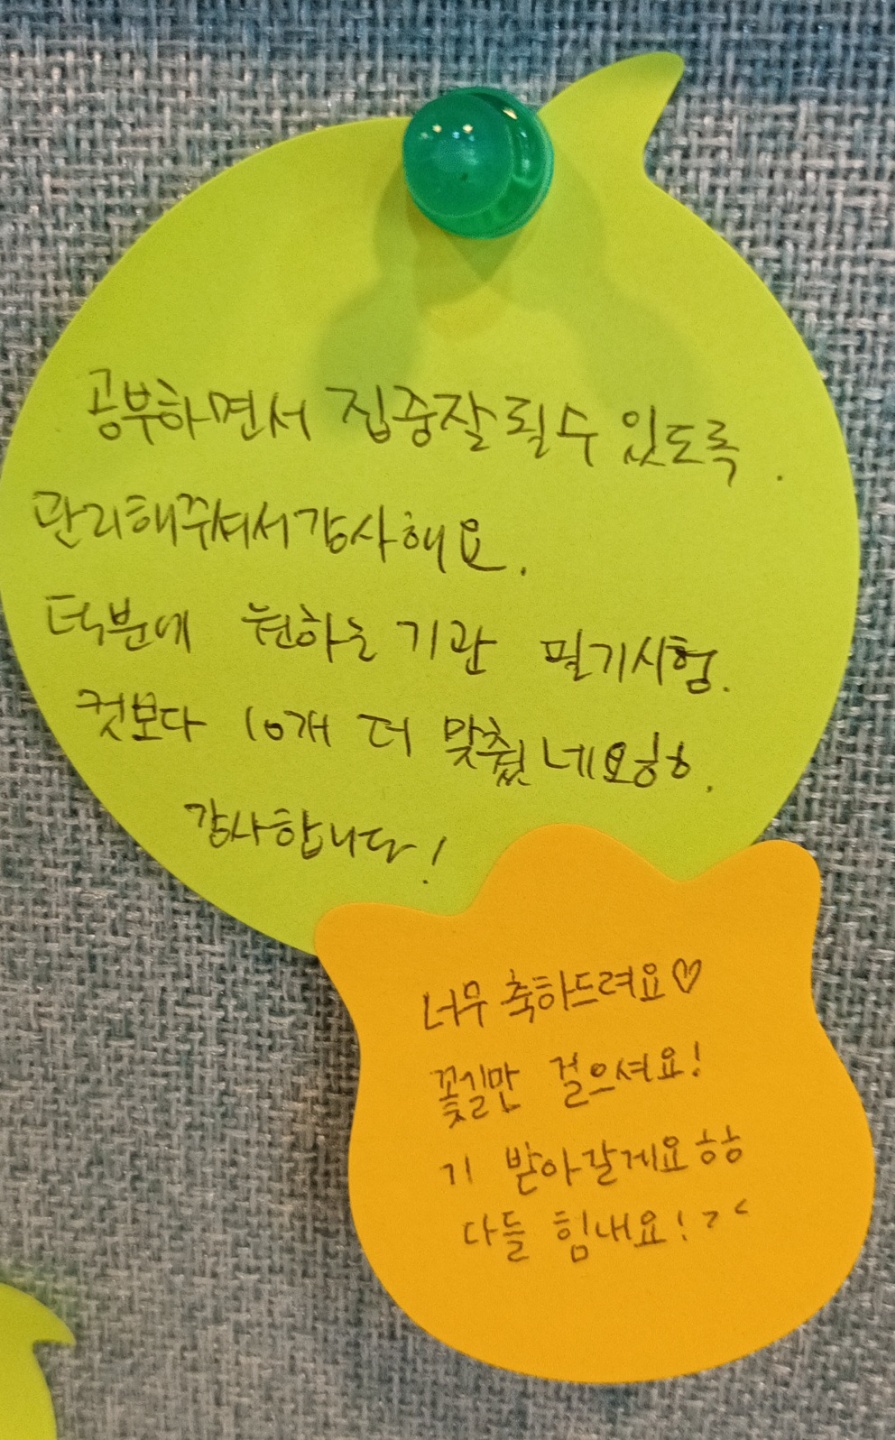 공부하면서 집중잘 될 수 있도록.
관리해주셔서 감사해요.
덕분에 원하는 기관 필기시험.
컷보다 10개 더 맞췄네요ㅎㅎ.
감사합니다!
너무 축하드려요♡
꽃길만 걸으셔요!
기 받아갈게요ㅎㅎ
다들 힘내요! > <